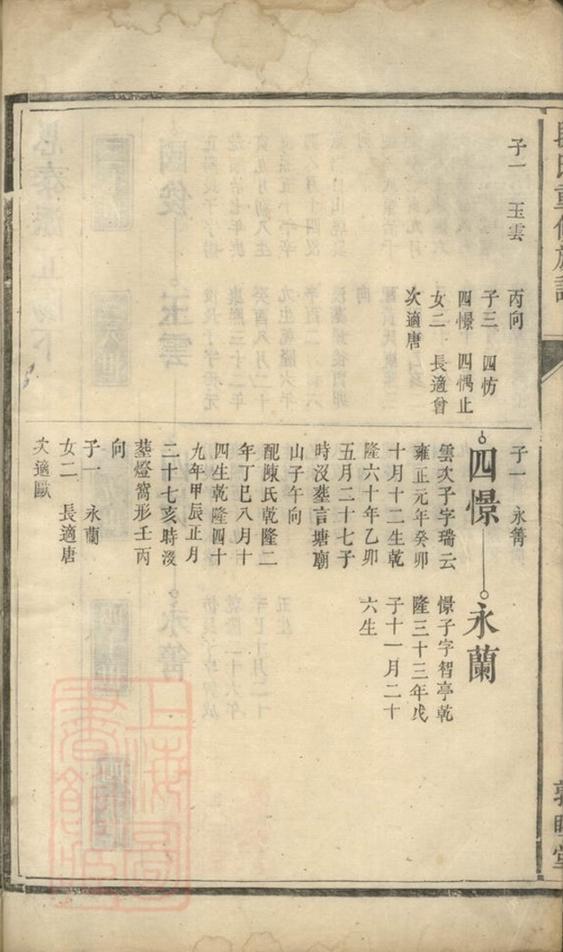 子一　玉雲
丙向
子三　四㤃
四憬　四㥥止
女二　長適曾
次適唐
子一　永篝
四憬
雲次子字瑞云
雍正元年癸卯
十月十二生乾
隆六十年乙卯
五月二十七子
時沒塟言塘廟
山子午向
配陳氏乾隆二
年丁巳八月十
四生乾隆四十
九年甲辰正月
二十七亥時沒
塟燈窩形壬丙
向
子一　永蘭
女二　長適唐
次適歐
永蘭
憬子字智亭乾
隆三十三年戊
子十一月二十
六生
敦睦堂
上海圖書館藏